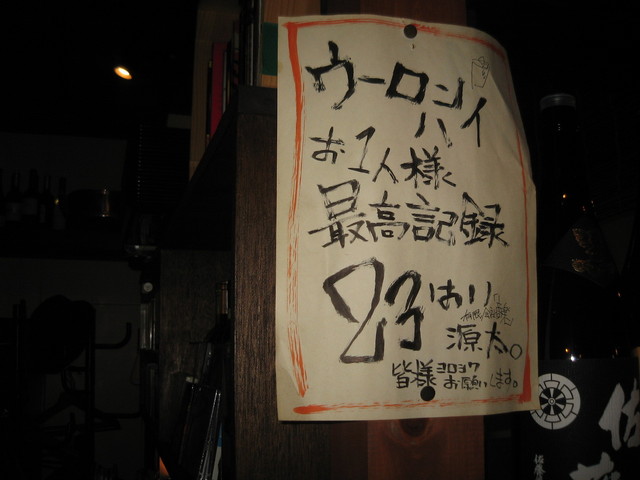 ウーロンハイ
お1人様
最高記録
23はい
源太。
皆様ヨロシク
お願いします。
佐